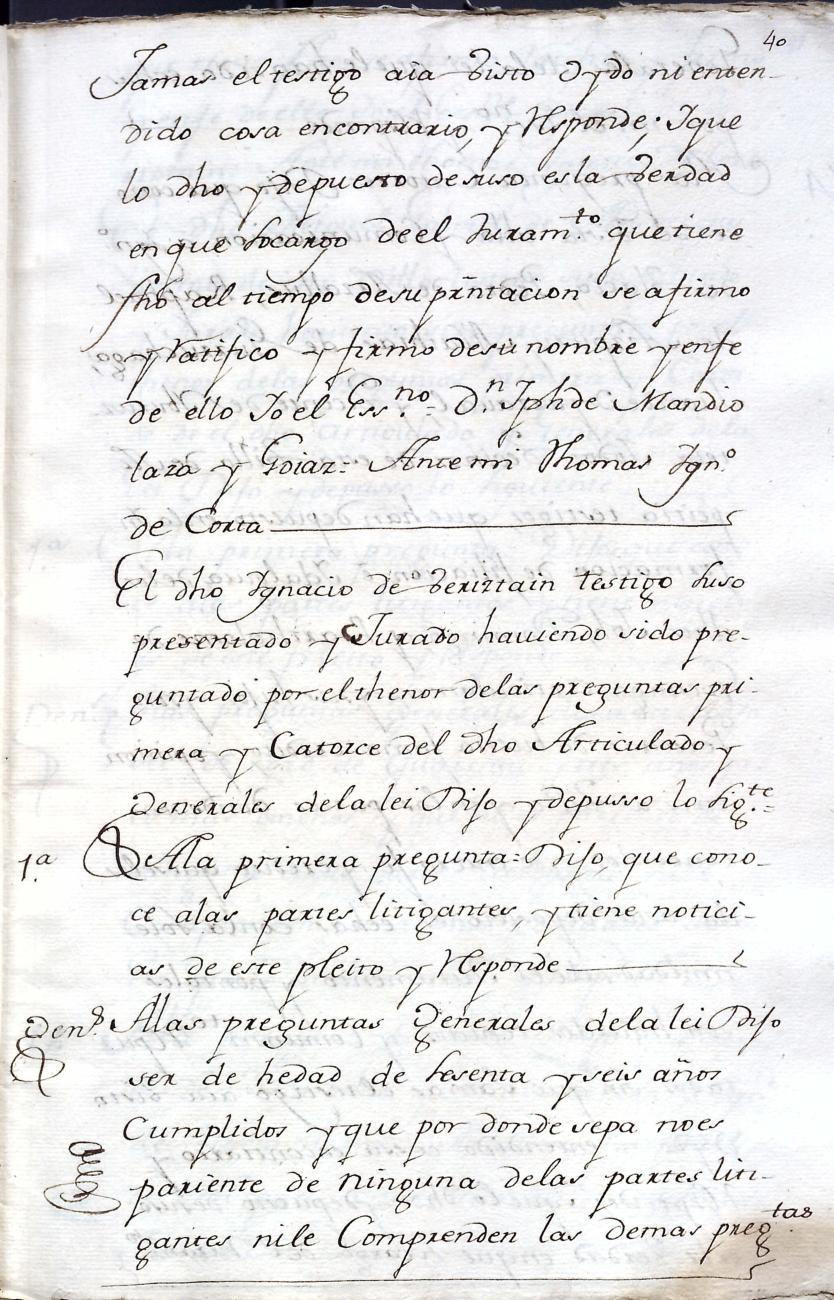 40
Jamas el testigo aia visto oydo ni enten-
dido cosa encontrario, y Responde; Ique
lo dho y depuesto desuso es la verdad
en que so cargo de el Juram.to que tiene
fho al tiempo de su prntacion se afirmo
y Ratifico y firmo desu nombre y enfe
de ello Io el Ess.no = D.n Jph de Mandio
laza y Goiaz = Antemi Thomas Ign.o
de Corta
El dho Ygnacio de Veriztain testigo suso
presentado y Jurado haviendo sido pre-
guntado por el thenor delas preguntas pri-
mera y Catorce del dho Articulado y
Generales dela lei Dijo y depusso lo sig.te =
1.a Ala primera pregunta = Dijo, que cono-
ce alas partes litigantes, y tiene notici-
as de este pleito y Responde
Gen.s Alas preguntas Generales dela lei Dijo
ser de hedad de sesenta y seis años
Cumplidos y que por donde sepa no es
pariente de ninguna delas partes liti-
gantes nile Comprenden las demas preg.tas